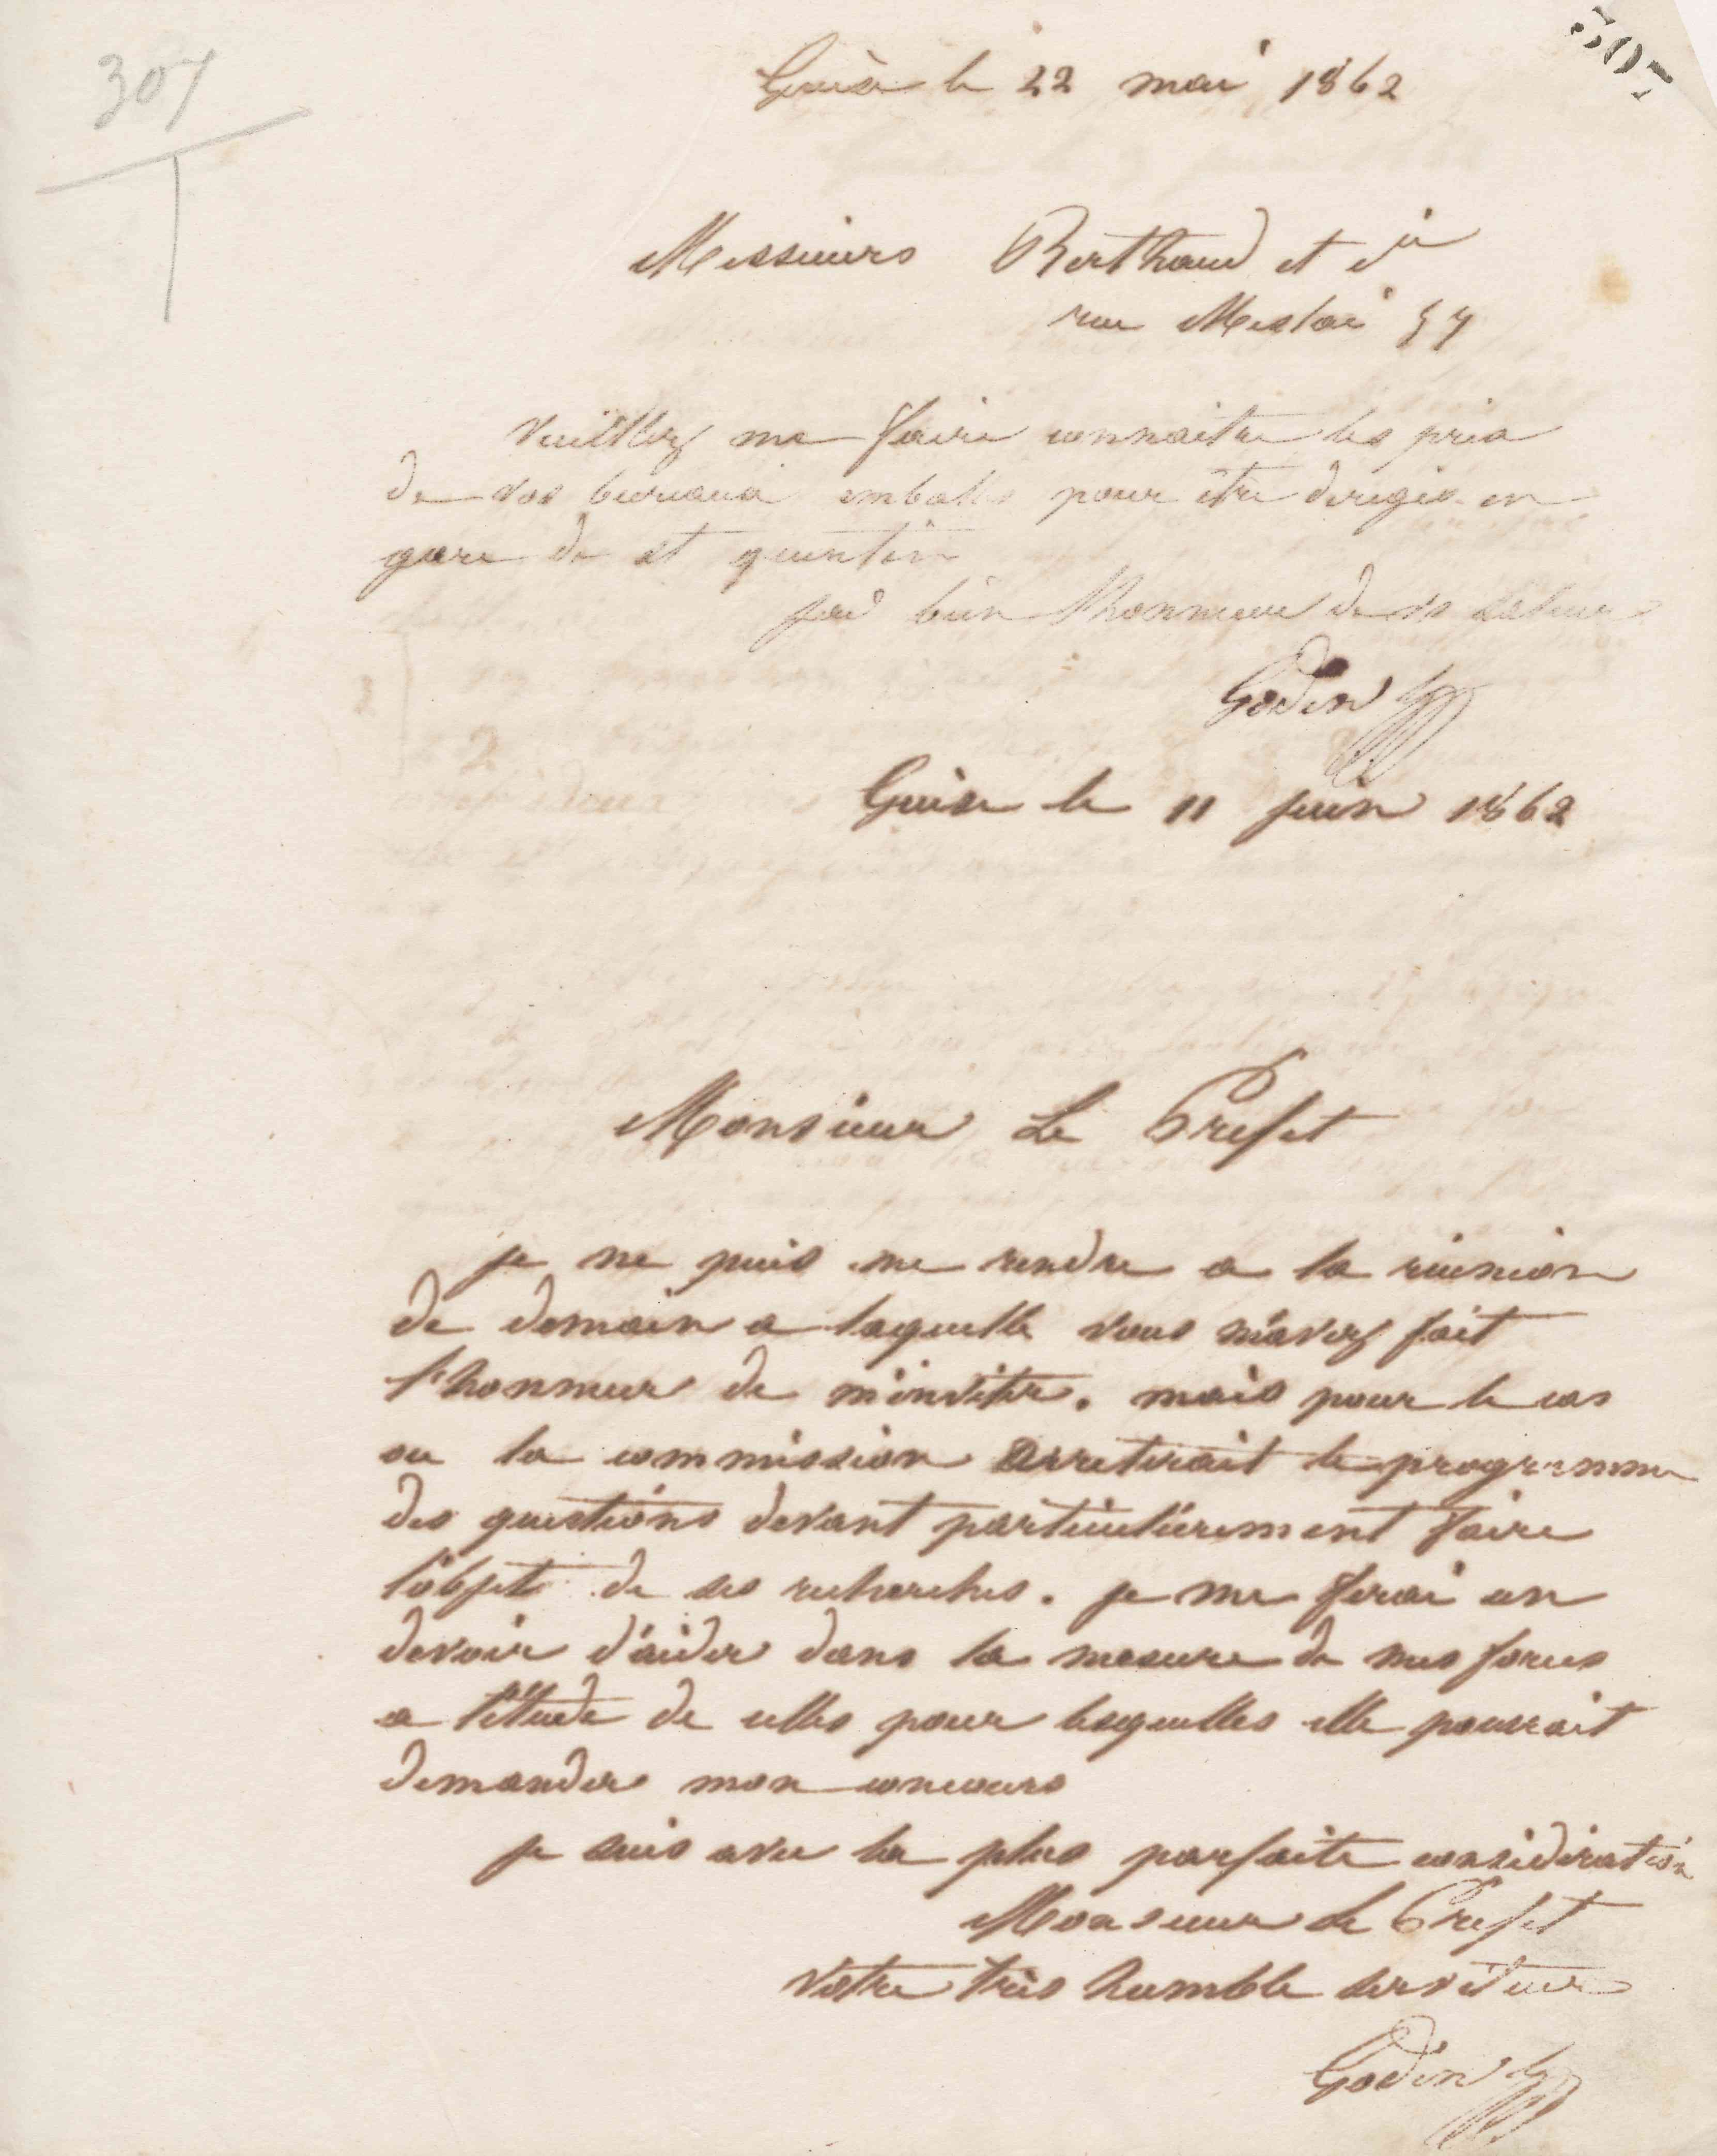 307
507
Guise le 22 mai 1862
Messieurs Berthaud et cie
rue Meslai 57
veuillez me faire connaitre les prix
de vos bureaux emballés pour être dirigés en
gare de st quentin
jai bien l'honneur de vs saluer
Godin
Guise le 11 juin 1862
Monsieur Le Prefet
je ne puis me rendre a la réunion
de demain a laquelle vous m'avez fait
l'honneur de m'inviter. mais pour le cas
ou la commission arreterait le programme
des questions devant particulièrement faire
l'objet de ses recherches. je me ferai un
devoir d'aider dans la mesure de mes forces
a l'étude de celles pour lesquelles elle pourrait
demander mon concours
je suis avec la plus parfaite considération
Monsieur Le Prefet
votre très humble serviteur
Godin